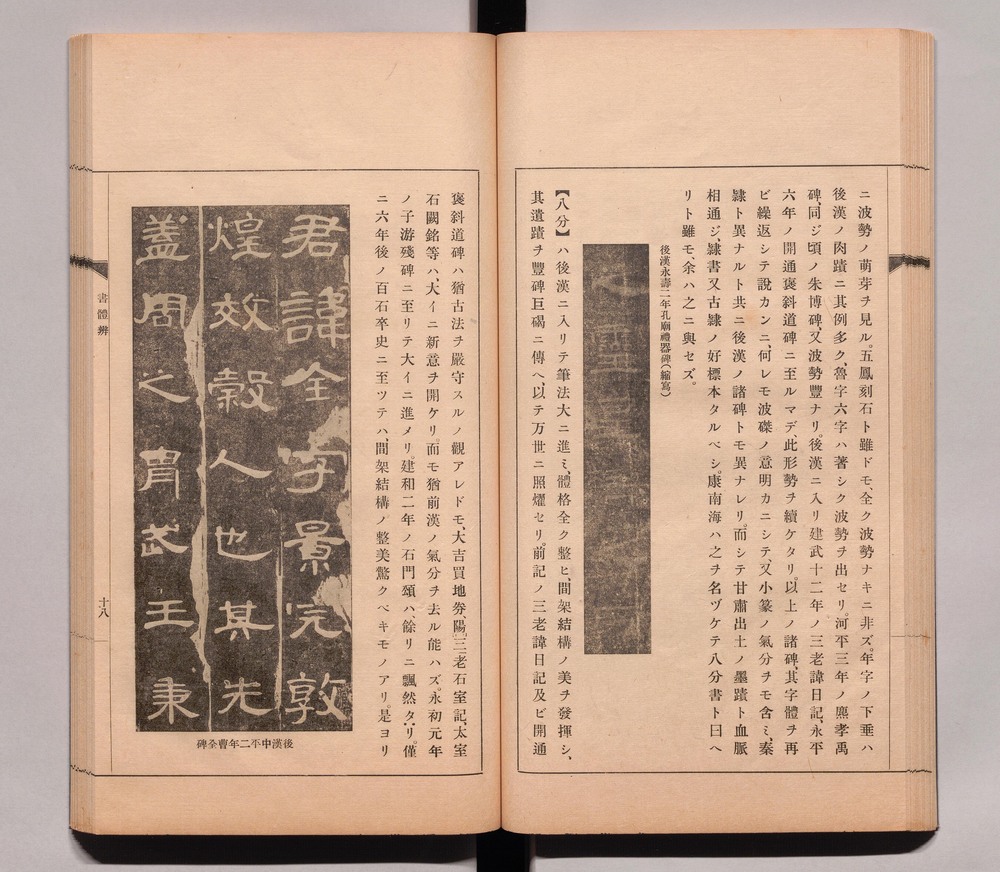 ニ波勢ノ萌芽ヲ見ル。五鳳刻石ト雖ドモ、全ク波勢ナキニ非ズ。年字ノ下垂ハ
後漢ノ肉蹟ニ其例多ク、魯字六字ハ著シク波勢ヲ出セリ。河平三年ノ麃孝禹
碑、同ジ頃ノ朱博碑、又波勢豐ナリ。後漢ニ入リ建武十二年ノ三老諱日記、永平
六年ノ開通褒斜道碑ニ至ルマデ、此形勢ヲ續ケタリ。以上ノ諸碑、其字體ヲ再
ビ繰返シテ說カンニ、何レモ波磔ノ意明カニシテ、又小篆ノ氣分ヲモ含ミ、秦
隷ト異ナルト共ニ後漢ノ諸碑トモ異ナレリ。而シテ甘肅出土ノ墨蹟ト血脈
相通ジ、隷書又古隷ノ好標本タルベシ。康南海ハ之ヲ名ヅケテ八分書ト曰ヘ
リト雖モ、余ハ之ニ與セズ。
後漢永壽二年孔廟禮器碑(縮寫)
【八分】ハ後漢ニ入リテ筆法大ニ進ミ、體格全ク整ヒ、間架結構ノ美ヲ發揮シ、
其遺蹟ヲ豐碑巨碣ニ傳ヘ、以テ万世ニ照燿セリ。前記ノ三老諱日記及ビ開通
褒斜道碑ハ猶古法ヲ嚴守スルノ觀アレドモ、大吉買地券、陽三老石室記、太室
石闕銘等ハ、大イニ新意ヲ開ケリ。而モ猶前漢ノ氣分ヲ去ル能ハズ。永初元年
ノ子游殘碑ニ至リテ大イニ進メリ。建和二年ノ石門頌ハ餘リニ飄然タリ。僅
ニ六年後ノ百石卒史ニ至ツテハ、間架結構ノ整美驚クベキモノアリ。是ヨリ
君諱全字景完敦
煌效穀人也其先
蓋周之冑武王秉
後漢中平二年曹全碑
書體辨
十八